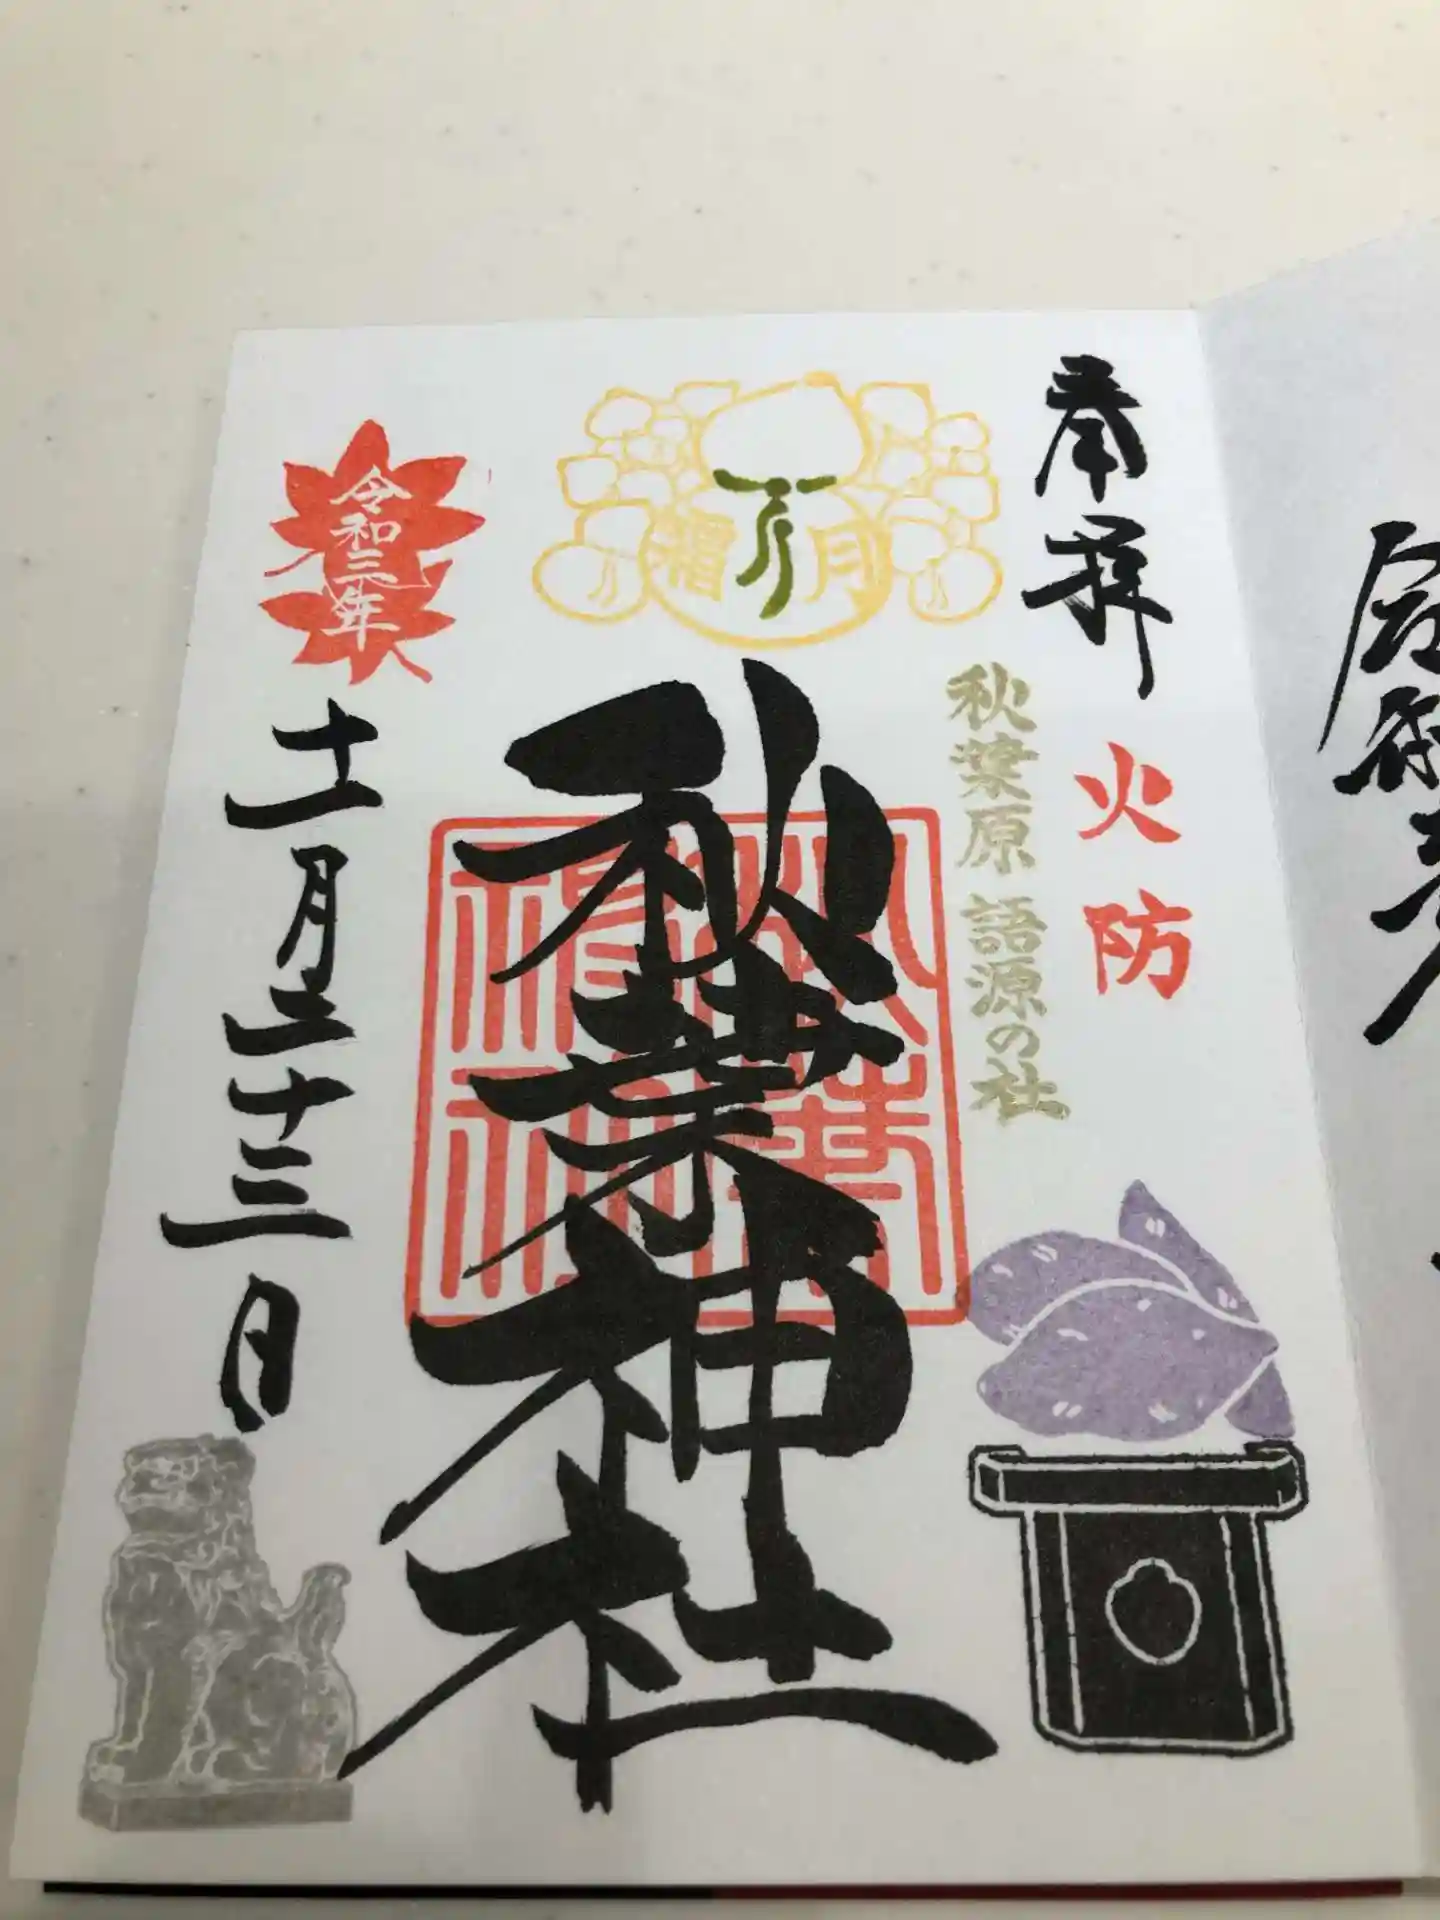 奉拝
火防
秋葉原 語源の社
福
月
秋葉神社
秋葉神社
令和三年
十一月二十三日